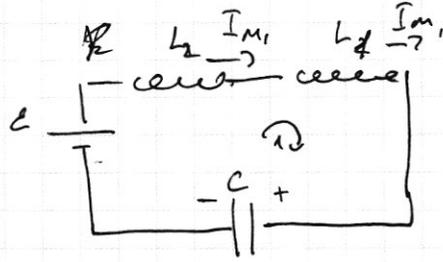 L₂ I_M₁ L₁ I_M₁
ε
1
− C +